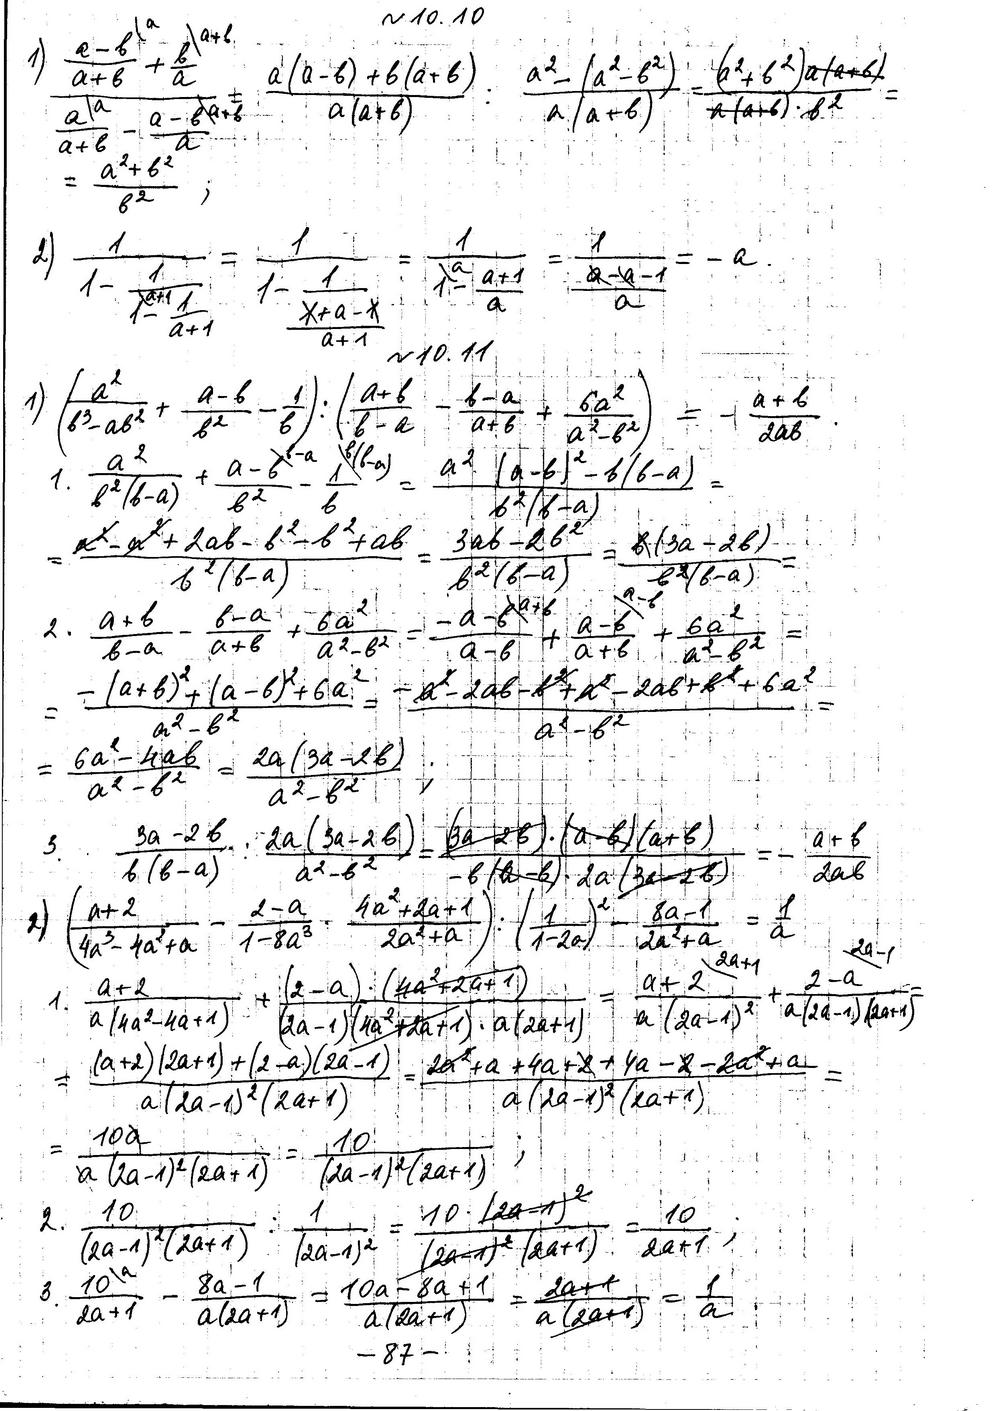 ~10.10
1) ((a-b)/(a+b) \a + b/a \a+b) / (a/(a+b) \a - (a-b)/a \a+b) = (a(a-b)+b(a+b))/(a(a+b)) : (a²-(a²-b²))/(a(a+b)) = ((a²+b²)a(a+b))/(a(a+b)·b²) =
= (a²+b²)/b² ;
2) 1/(1-1/(1 \a+1 - 1/(a+1))) = 1/(1-1/((1+a-1)/(a+1))) = 1/(1 \a - (a+1)/a) = 1/((a-a-1)/a) = -a.
~10.11
1) (a²/(b³-ab²) + (a-b)/b² - 1/b) : ((a+b)/(b-a) - (b-a)/(a+b) + 6a²/(a²-b²)) = -(a+b)/(2ab).
1. a²/(b²(b-a)) + (a-b)/b² \b-a - 1/b \b(b-a) = (a² (a-b)²-b(b-a))/(b²(b-a)) =
= (a²-a²+2ab-b²-b²+ab)/(b²(b-a)) = (3ab-2b²)/(b²(b-a)) = (b(3a-2b))/(b²(b-a)) =
2. (a+b)/(b-a) - (b-a)/(a+b) + 6a²/(a²-b²) = (-a-b)/(a-b) \a+b + (a-b)/(a+b) \a-b + 6a²/(a²-b²) =
= (-(a+b)²+(a-b)²+6a²)/(a²-b²) = (-a²-2ab-b²+a²-2ab+b²+6a²)/(a²-b²) =
= (6a²-4ab)/(a²-b²) = (2a(3a-2b))/(a²-b²) ;
3. (3a-2b)/(b(b-a)) : (2a(3a-2b))/(a²-b²) = ((3a-2b)·(a-b)(a+b))/(-b(a-b)·2a(3a-2b)) = -(a+b)/(2ab)
2) ((a+2)/(4a³-4a²+a) - (2-a)/(1-8a³) · (4a²+2a+1)/(2a²+a)) : (1/(1-2a))² - (8a-1)/(2a²+a) = 1/a
1. (a+2)/(a(4a²-4a+1)) + ((2-a)·(4a²+2a+1))/((2a-1)(4a²+2a+1)·a(2a+1)) = (a+2)/(a(2a-1)²) \2a+1 + (2-a)/(a(2a-1)(2a+1)) \2a-1 =
= ((a+2)(2a+1)+(2-a)(2a-1))/(a(2a-1)²(2a+1)) = (2a²+a+4a+2+4a-2-2a²+a)/(a(2a-1)²(2a+1)) =
= 10a/(a(2a-1)²(2a+1)) = 10/((2a-1)²(2a+1)) ;
2. 10/((2a-1)²(2a+1)) : 1/(2a-1)² = (10·(2a-1)²)/((2a-1)²(2a+1)) = 10/(2a+1) ;
3. 10/(2a+1) \a - (8a-1)/(a(2a+1)) = (10a-8a+1)/(a(2a+1)) = (2a+1)/(a(2a+1)) = 1/a
-87-